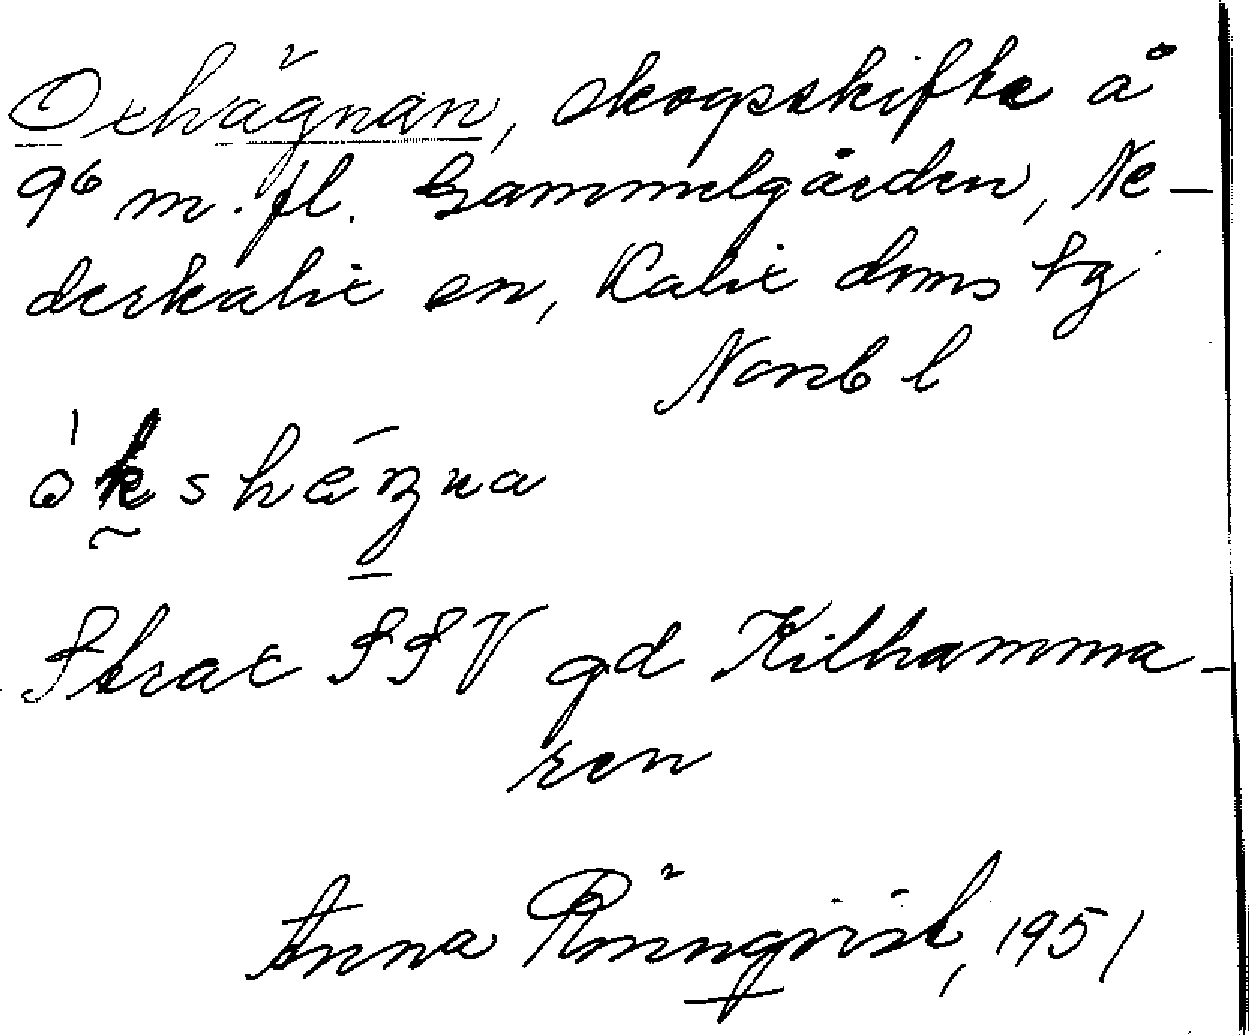 Oxhägnan, skogsskifte å
9⁶ m. fl. Gammelgården, Ne-
derkalix sn, Kalix dms tg
Norrb l
Strax SSV gd Kilhamma-
ren
Anna Rönnqvist, 1951